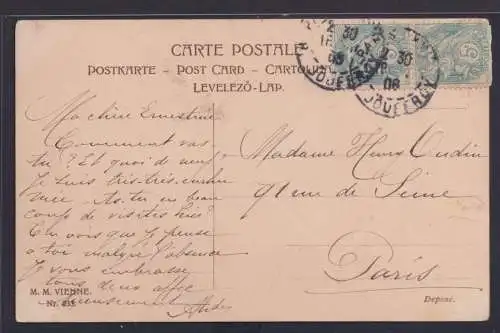 CARTE POSTALE
POSTKARTE – POST CARD – CARTOLINA
LEVELEZŐ-LAP.
Ma chère Ernestine
Comment vas-
tu? Et quoi de neuf
Je suis très-très-enrhu
mée. As-tu eu beau
coup de visites hier?
Tu vois que je pense
à toi malgré l'absence
Je vous embrasse
tous deux affec
tueusement
Madame Henry Oudin
91 rue de Seine
Paris
M. M. VIENNE.
Nr.
Déposé.
30
30
06
JOUFFROY
JOUFFROY